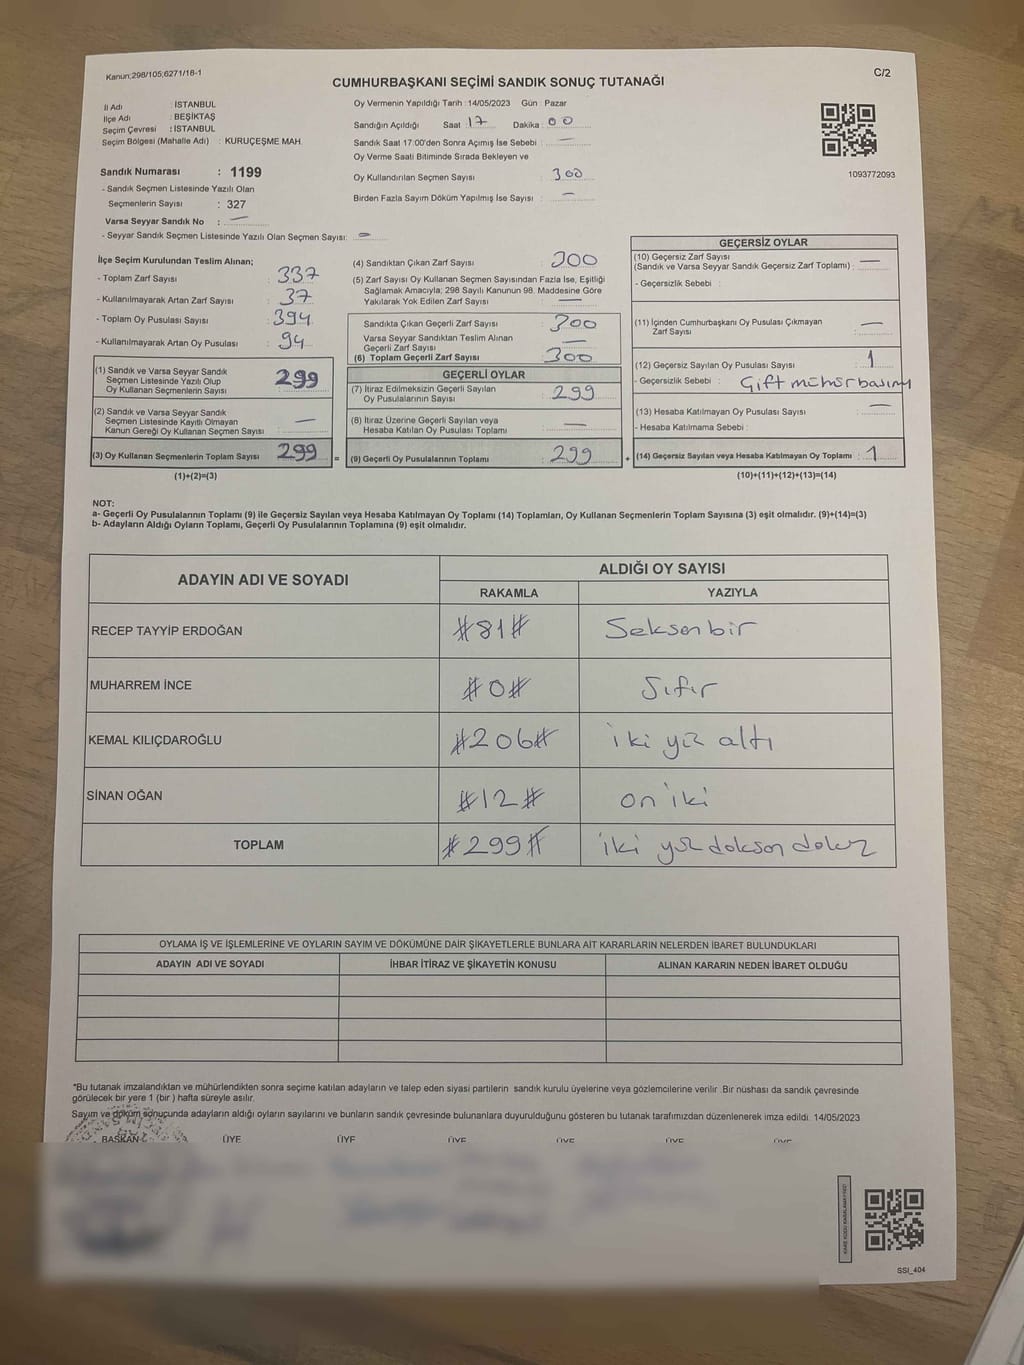 Kanun;298/105;6271/18-1
C/2
CUMHURBAŞKANI SEÇİMİ SANDIK SONUÇ TUTANAĞI
İl Adı : İSTANBUL
İlçe Adı : BEŞİKTAŞ
Seçim Çevresi : İSTANBUL
Seçim Bölgesi (Mahalle Adı) : KURUÇEŞME MAH.
Sandık Numarası : 1199
- Sandık Seçmen Listesinde Yazılı Olan
Seçmenlerin Sayısı : 327
Varsa Seyyar Sandık No : —
- Seyyar Sandık Seçmen Listesinde Yazılı Olan Seçmen Sayısı: —
Oy Vermenin Yapıldığı Tarih : 14/05/2023 Gün Pazar
Sandığın Açıldığı Saat : 17 Dakika : 00
Sandık Saat 17:00'den Sonra Açımış İse Sebebi : —
Oy Verme Saati Bitiminde Sırada Bekleyen ve
Oy Kullandırılan Seçmen Sayısı : 300
Birden Fazla Sayım Döküm Yapılmış İse Sayısı : —
1093772093
İlçe Seçim Kurulundan Teslim Alınan;
- Toplam Zarf Sayısı : 337
- Kullanılmayarak Artan Zarf Sayısı : 37
- Toplam Oy Pusulası Sayısı : 394
- Kullanılmayarak Artan Oy Pusulası : 94
(1) Sandık ve Varsa Seyyar Sandık
Seçmen Listesinde Yazılı Olup
Oy Kullanan Seçmenlerin Sayısı : 299
(2) Sandık ve Varsa Seyyar Sandık
Seçmen Listesinde Kayıtlı Olmayan
Kanun Gereği Oy Kullanan Seçmen Sayısı : —
(3) Oy Kullanan Seçmenlerin Toplam Sayısı : 299
(1)+(2)=(3)
=
(4) Sandıktan Çıkan Zarf Sayısı : 300
(5) Zarf Sayısı Oy Kullanan Seçmen Sayısından Fazla İse, Eşitliği
Sağlamak Amacıyla; 298 Sayılı Kanunun 98. Maddesine Göre
Yakılarak Yok Edilen Zarf Sayısı : —
Sandıkta Çıkan Geçerli Zarf Sayısı : 300
Varsa Seyyar Sandıktan Teslim Alınan
Geçerli Zarf Sayısı : —
(6) Toplam Geçerli Zarf Sayısı : 300
GEÇERLİ OYLAR
(7) İtiraz Edilmeksizin Geçerli Sayılan
Oy Pusulalarının Sayısı : 299
(8) İtiraz Üzerine Geçerli Sayılan veya
Hesaba Katılan Oy Pusulası Toplamı : —
(9) Geçerli Oy Pusulalarının Toplamı : 299
+
GEÇERSİZ OYLAR
(10) Geçersiz Zarf Sayısı
(Sandık ve Varsa Seyyar Sandık Geçersiz Zarf Toplamı) : —
- Geçersizlik Sebebi :
(11) İçinden Cumhurbaşkanı Oy Pusulası Çıkmayan
Zarf Sayısı : —
(12) Geçersiz Sayılan Oy Pusulası Sayısı : 1
- Geçersizlik Sebebi : Çift mühür basımı
(13) Hesaba Katılmayan Oy Pusulası Sayısı : —
- Hesaba Katılmama Sebebi :
(14) Geçersiz Sayılan veya Hesaba Katılmayan Oy Toplamı : 1
(10)+(11)+(12)+(13)=(14)
NOT:
a- Geçerli Oy Pusulalarının Toplamı (9) ile Geçersiz Sayılan veya Hesaba Katılmayan Oy Toplamı (14) Toplamları, Oy Kullanan Seçmenlerin Toplam Sayısına (3) eşit olmalıdır. (9)+(14)=(3)
b- Adayların Aldığı Oyların Toplamı, Geçerli Oy Pusulalarının Toplamına (9) eşit olmalıdır.
ADAYIN ADI VE SOYADI
ALDIĞI OY SAYISI
RAKAMLA YAZIYLA
RECEP TAYYİP ERDOĞAN #81# Seksenbir
MUHARREM İNCE #0# Sıfır
KEMAL KILIÇDAROĞLU #206# iki yüz altı
SİNAN OĞAN #12# on iki
TOPLAM #299# iki yüz doksan dokuz
OYLAMA İŞ VE İŞLEMLERİNE VE OYLARIN SAYIM VE DÖKÜMÜNE DAİR ŞİKAYETLERLE BUNLARA AİT KARARLARIN NELERDEN İBARET BULUNDUKLARI
ADAYIN ADI VE SOYADI İHBAR İTİRAZ VE ŞİKAYETİN KONUSU ALINAN KARARIN NEDEN İBARET OLDUĞU
*Bu tutanak imzalandıktan ve mühürlendikten sonra seçime katılan adayların ve talep eden siyasi partilerin sandık kurulu üyelerine veya gözlemcilerine verilir .Bir nüshası da sandık çevresinde
görülecek bir yere 1 (bir ) hafta süreyle asılır.
Sayım ve döküm sonuçunda adayların aldığı oyların sayılarını ve bunların sandık çevresinde bulunanlara duyurulduğunu gösteren bu tutanak tarafımızdan düzenlenerek imza edildi. 14/05/2023
BAŞKAN ÜYE ÜYE ÜYE ÜYE ÜYE ÜYE
SSI_404